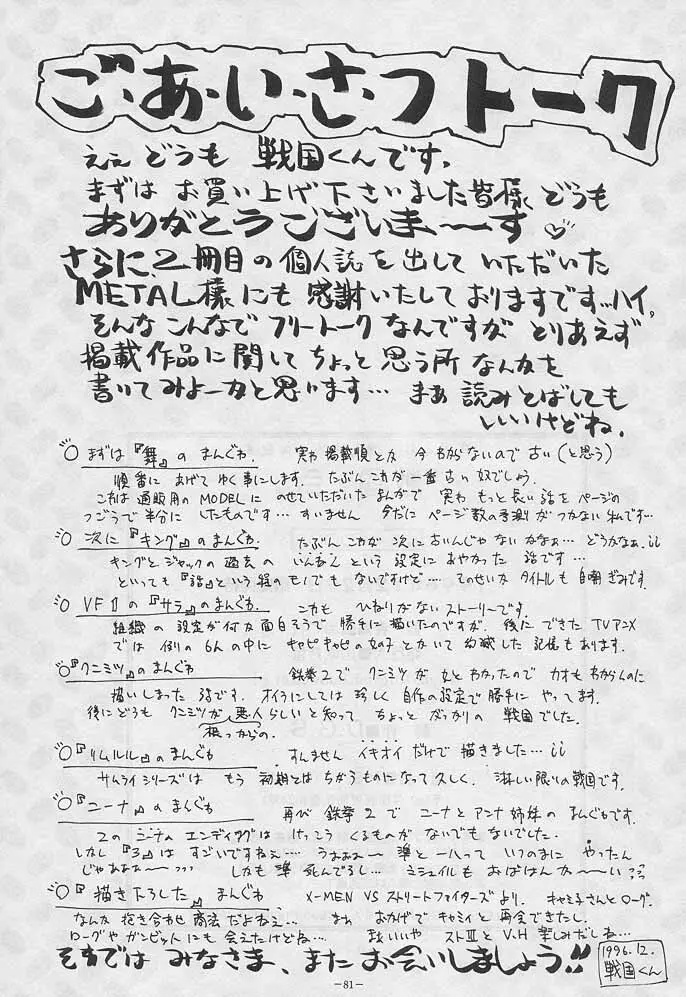 ご・あ・い・さ・つトーク
ええ どうも 戦国くんです。
まずは お買い上げ下さいました皆様 どうも
ありがとうございま〜〜す♡
さらに、2冊目の個人誌を出していただいた
METAL様にも感謝いたしておりますです…ハイ。
そんなこんなで フリートーク なんですが とりあえず
掲載作品に関して ちょっと 思う所なんかを
書いてみよーかと思います… まぁ 読みとばしても
いいけどね。
○ まずは『舞』の まんがね. 実は 掲載順とか 今 わからないので 古い(と思う)
順番に あげて ゆく事にします. たぶん これが 一番 古い 奴でしょう.
これは 通販用の MODELに のせていただいた まんがで 実は もっと長い 話を ページの
つごうで 半分に したものです… すいません 今だに ページ数の予測が つかない 私です…
○ 次に『キング』の まんがね. たぶん これが 次に 古いんじゃないかなぁ… どうかなぁ.
キングと ジャックの 過去の いんねん という 設定に おやかった 話です…
といっても『話』という 程の モノでも ないですけど…. そのせいか タイトルも 自嘲ぎみです.
○ VFⅡの『サラ』の まんがね. これも ひねりがない ストーリーです.
組織の 設定が 何か 面白そうで 勝手に 描いたのですが. 後に できた TVアニメ
では 例の 6人の中に キャピキャピの 女の子とかいて 幻滅した 記憶も あります.
○『クニミツ』の まんがね 鉄拳2で クニミツが 女と わかったので カオも わからんのに
描いてしまった 話です. オイラにしては 珍しく 自作の設定で 勝手に やってます.
後にどうも クニミツが 悪人らしいと 知って ちょっと がっかりの 戦国でした.
根っからの.
○『リムルル』の まんがね すんません イキオイ だけで 描きました…
サムライシリーズは もう 初期とは ちがうものに なって 久しく. 淋しい限りの 戦国です.
○『ニーナ』の まんがね 再び 鉄拳2で ニーナと アンナ 姉妹の まんがです.
2の ニーナ エンディングは けっこう くるものが ないでも ないでした.
しかし『3』は すごいですねぇ…. うおぉぉ〜 準と 一八って いつのまに やったん
じゃあぁぁ〜??? しかも 準 死んでるし… ミシェイルも おばはんか〜〜い??
○『描き下ろした』まんがね X-MEN VS ストリートファイターズより. キャミ子さんと ローグ.
なんか 抱き合わせ 商法 だよねぇ…. まぁ おかげで キャミィと 再会できたし.
ローグや ガンビットにも 会えたけどね… まぁいいや ストⅢと V・H 楽しみだしね…
それでは みなさま、また お会いしましょう!!
1996.12.
戦国くん
－81－